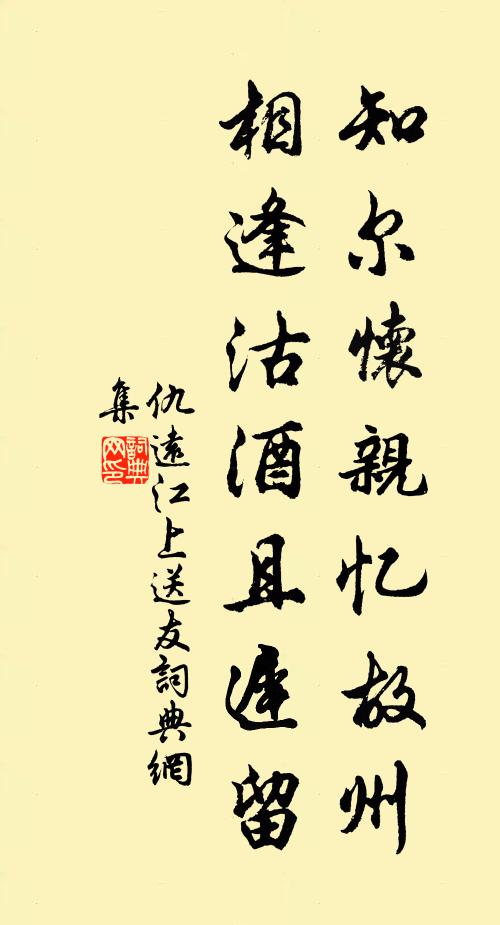 知尔懷親忆故州
相逢沽酒且遲留
仇遠江上送友詞典網
集
詞典網印